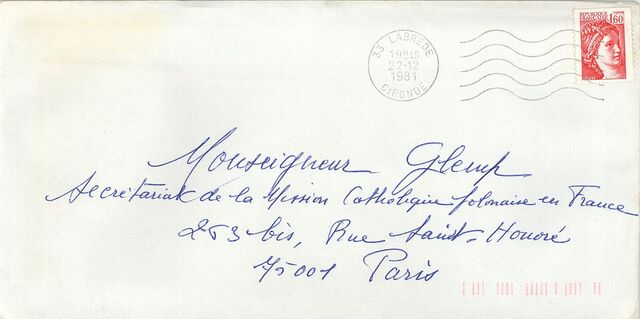 33 LABREDE
19H15
22-12
1981
GIRONDE
REPUBLIQUE
FRANÇAISE
1,60
Monseigneur Glemp
Secrétariat de la Mission Catholique polonaise en France
263 bis, Rue Saint-Honoré
75001 Paris